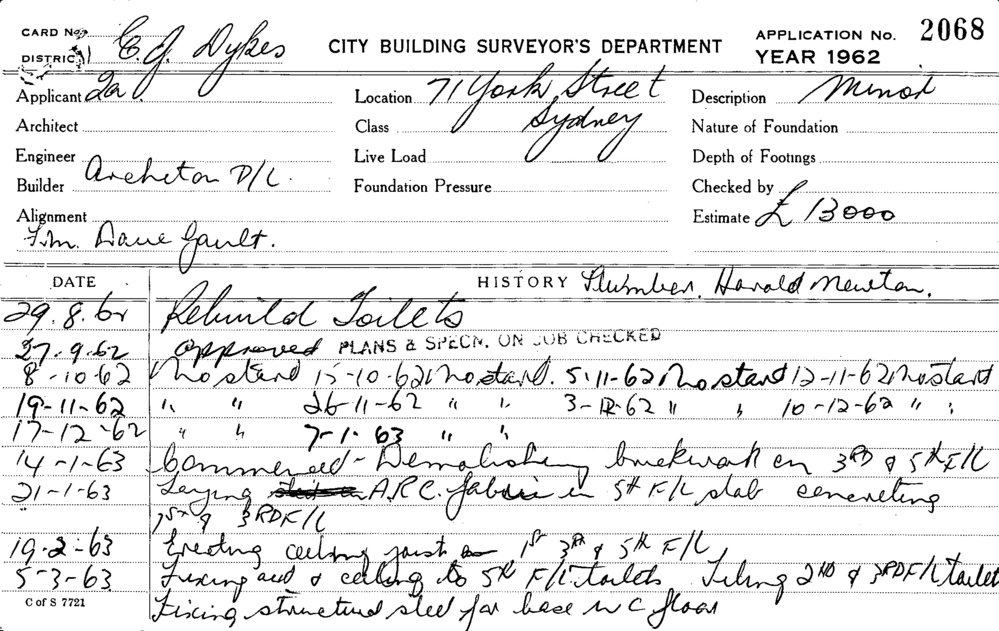 CARD No. E. J. Dykes CITY BUILDING SURVEYOR'S DEPARTMENT APPLICATION No. 2068
DISTRICT YEAR 1962
Applicant 2a Location 71 York Street Description Minor
Architect Class Sydney Nature of Foundation
Engineer Live Load Depth of Footings
Builder Archeton P/L. Foundation Pressure Checked by
Alignment Estimate £ 13000
F/m. Dave Gault.
DATE HISTORY Plumber. Harold Newton.
29.8.62 Rebuild Toilets
27.9.62 approved PLANS & SPECN. ON JOB CHECKED
8-10-62 No start 15-10-62 No start. 5-11-62 No start 12-11-62 No start
19-11-62 " " 26-11-62 " " 3-12-62 " " 10-12-62 " "
17-12-62 " " 7-1-63 " "
14-1-63 Commenced - Demolishing brickwork on 3RD & 5th F/L
21-1-63 Laying A.R.C. fabric in 5th F/L slab concreting
1st & 3RD F/L
19-2-63 Erecting ceiling joist 1st 3rd & 5th F/L
5-3-63 Fixing & ceiling to 5th F/L toilets Tiling 2ND & 3RD F/L toilet
C of S 7721 Fixing structural steel for base W C floor